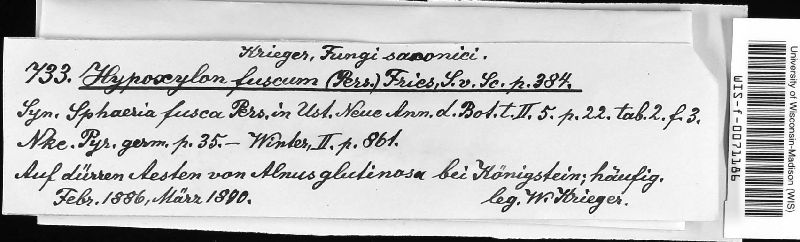 Krieger, Fungi saxonici.
733. Hypoxylon fuscum (Pers.) Fries, S. v. Sc. p. 384.
Syn. Sphaeria fusca Pers. in Ust. Neue Ann. d. Bot. t. II. 5. p. 22. tab. 2. f. 3.
Nke. Pyr. germ. p. 35. — Winter, II. p. 861.
Auf dürren Aesten von Alnus glutinosa bei Königstein; häufig.
Febr. 1886, März 1890. leg. W. Krieger.
University of Wisconsin-Madison (WIS)
WIS-f-0071186